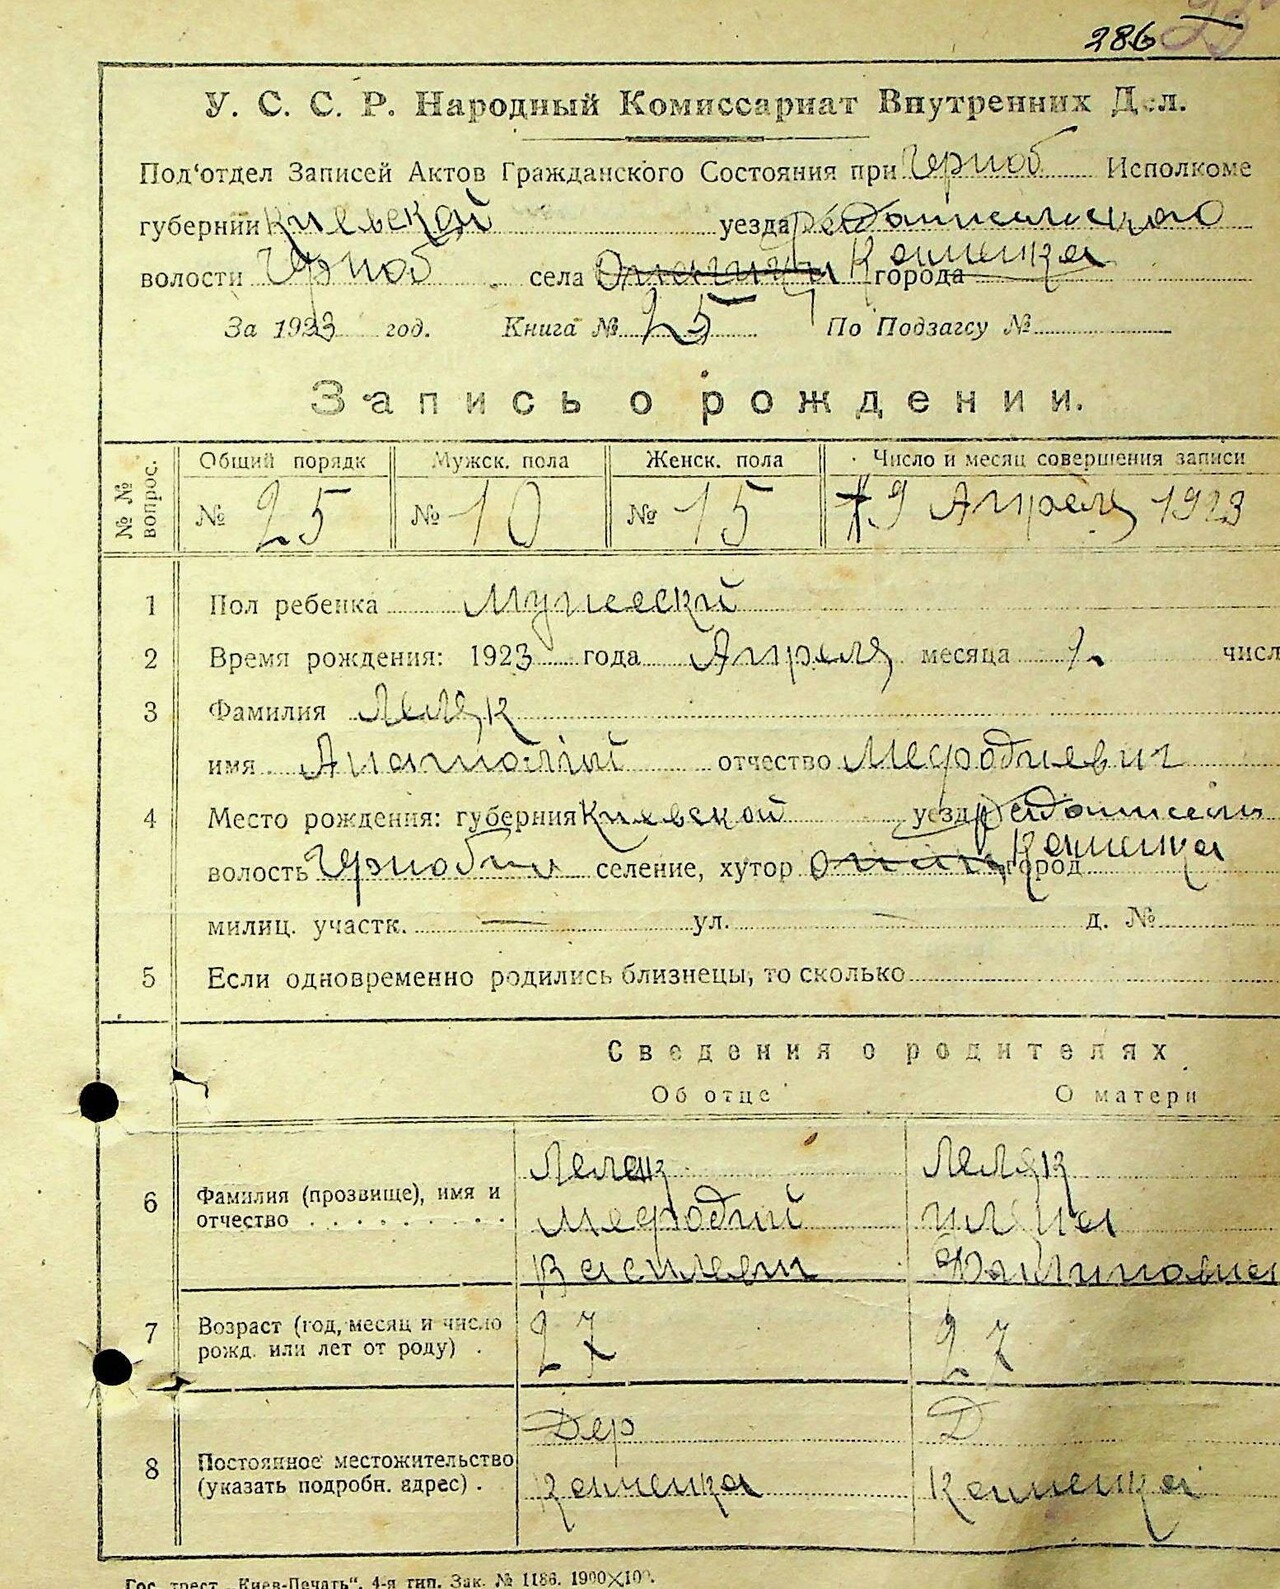 286
У. С. С. Р. Народный Комиссариат Внутренних Дел.
Под'отдел Записей Актов Гражданского Состояния при Черноб Исполкоме
губернии Киевской уезда
волости Черноб села города Каменка
За 1923 год. Книга № 25 По Подзагсу №
Запись о рождении.
№ № вопрос.
Общий порядк Мужск. пола Женск. пола Число и месяц совершения записи
№ 25 № 10 № 15 9 Апреля 1923
1 Пол ребенка Мужеский
2 Время рождения: 1923 года Апреля месяца 1. числ
3 Фамилия Леляк
имя Анатолий отчество Мефодиевич
4 Место рождения: губерния Киевской уезд
волость Чернобыл селение, хутор город Каменка
милиц. участк. — ул. — д. №
5 Если одновременно родились близнецы, то сколько
Сведения о родителях
Об отце О матери
6 Фамилия (прозвище), имя и отчество
Леляк Леляк
Мефодий Уляна
Василев
7 Возраст (год, месяц и число рожд. или лет от роду) .
27 27
8 Постоянное местожительство (указать подробн. адрес) .
Дер Д
Каменка Каменка
Гос. трест „Киев-Печать“, 4-я тип. Зак. № 1186. 1900×100.